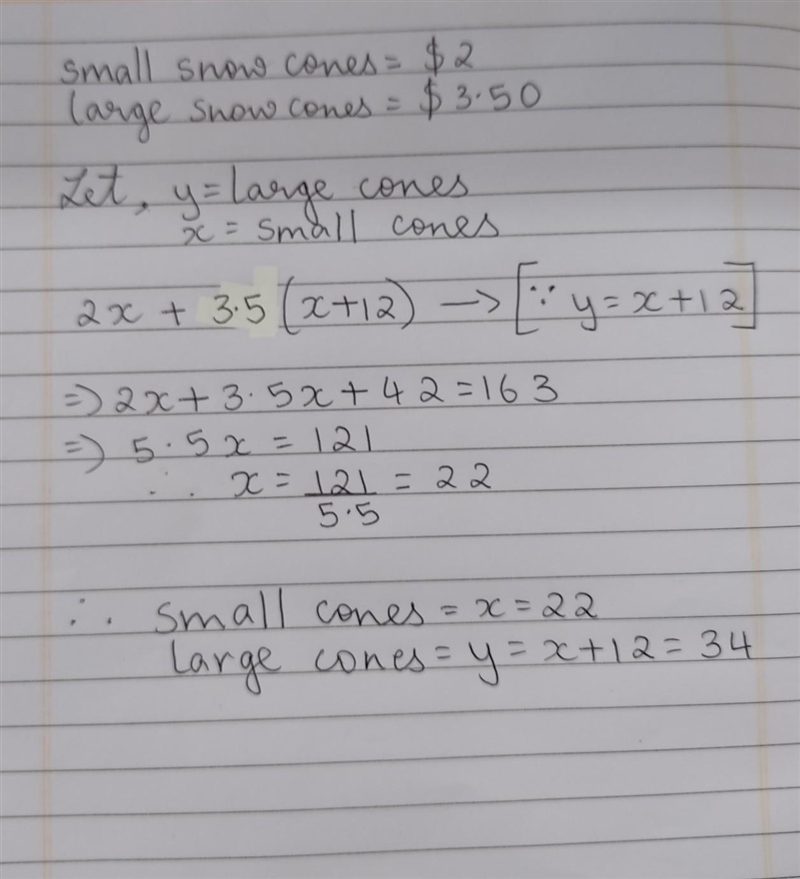 small snow cones = $2
large snow cones = $3.50
Let, y = large cones
x = small cones
2x + 3.5 (x+12) → [∵ y = x+12]
⇒ 2x + 3.5x + 42 = 163
⇒ 5.5x = 121
∴ x = 121/5.5 = 22
∴ small cones = x = 22
large cones = y = x+12 = 34